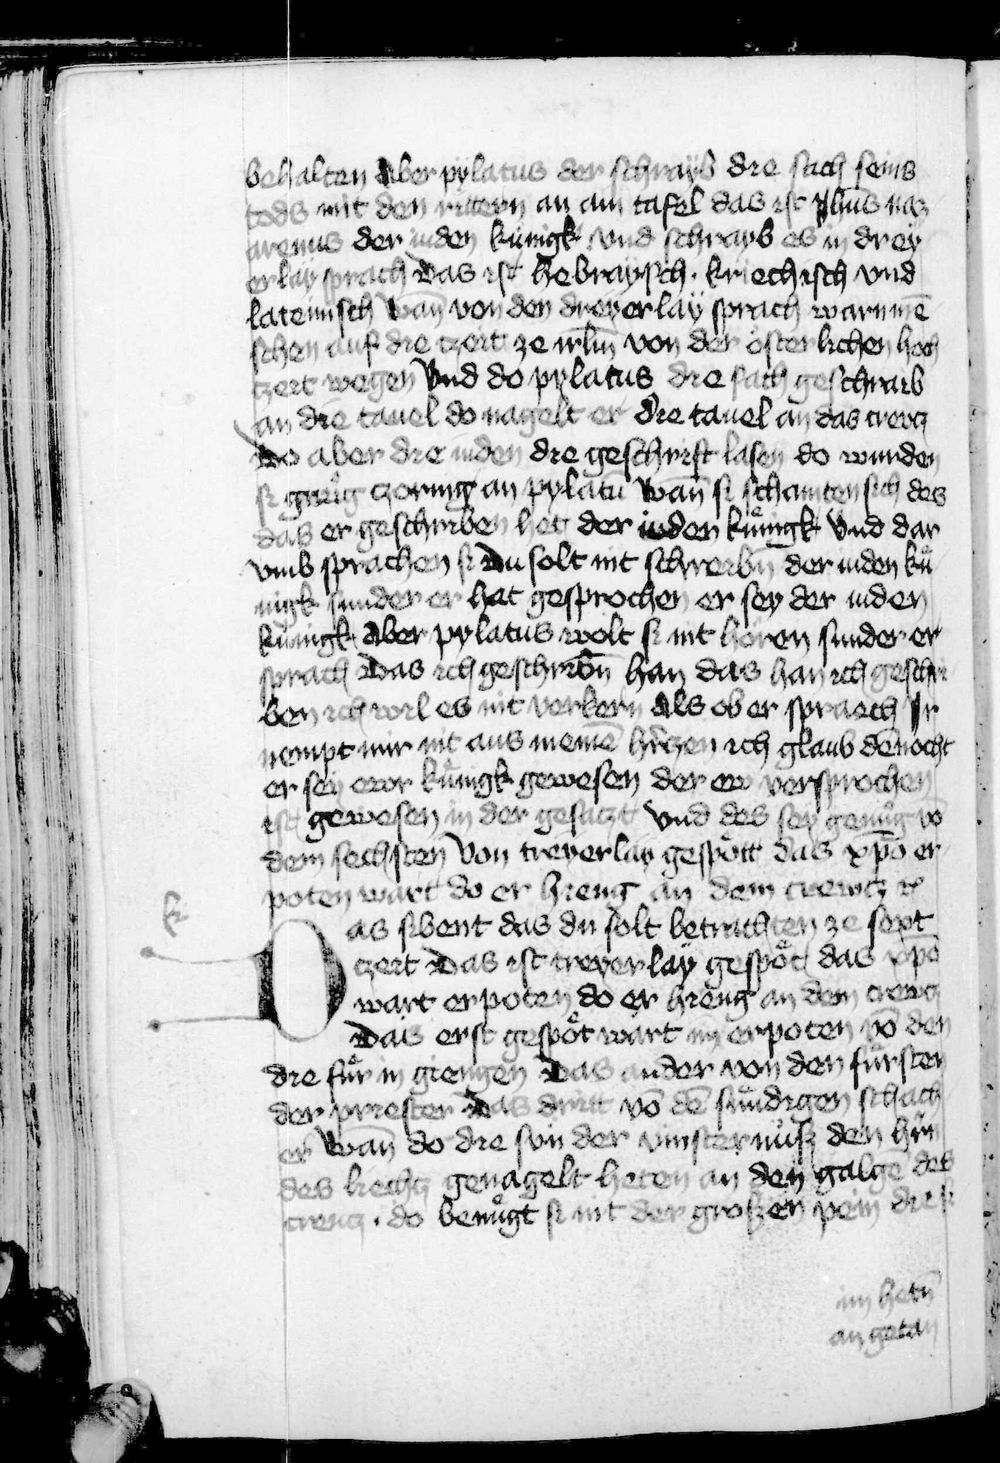 behalten Aber pylatus der schrayb die sach seins
tods mit den rittern an ain tafel das ist Jhūs naz
arenus der iuden kůnigk vnd schrayb es in drey
erlay sprach Das ist hebrayisch · kriechisch vnd
lateinisch Wañ von den dreyerlaÿ sprach warn mē
schen auf die czeit ze irlm̄ von der österlichen hoch
czeit wegen Vnd do pylatus die sach geschraib
an die tauel do nagelt er die tauel an das crewcz
Do aber die iuden die geschrift lasen do wurden
si gnůg czornig an pylatū Wañ si schamten sich des
das er geschriben het der iuden kůnigk Vnd dar
vmb sprachen si Du solt nit schreibn̄ der iuden ků
nigk sunder er hat gesprochen er sey der iuden
kůnigk Aber pylatus wolt si nit hören sunder er
sprach Das ich geschribn̄ han das han ich geschri
ben ich wil es nit verkern Als ob er spraech Ir
nempt mir nit aus meinē hr̄czen ich glaub dēnocht
er seÿ ewr kůnigk gewesen der ew versprochen
ist gewesen in der gesaczt Vnd des sey genůg vō
dem sechsten Von treyerlay gespött das xp̄o er
poten wart do er hieng an dem crewcz
as sibent das du solt betrachten ze sext
czeit Das ist treyerlaÿ gespöt das xp̄o
wart erpoten do er hieng an dem crewcz
Das erst gespöt wart im erpoten vō den
die für in giengen Das ander von den fürsten
der priester Das dritt vō dē sündigen schach
er Wañ do die sün der vinsternůsz den hrn̄
des liechcz genagelt heten an den galgē des
crewcz · do benůgt si nit der groszen pein die si
im hetn̄
an getan